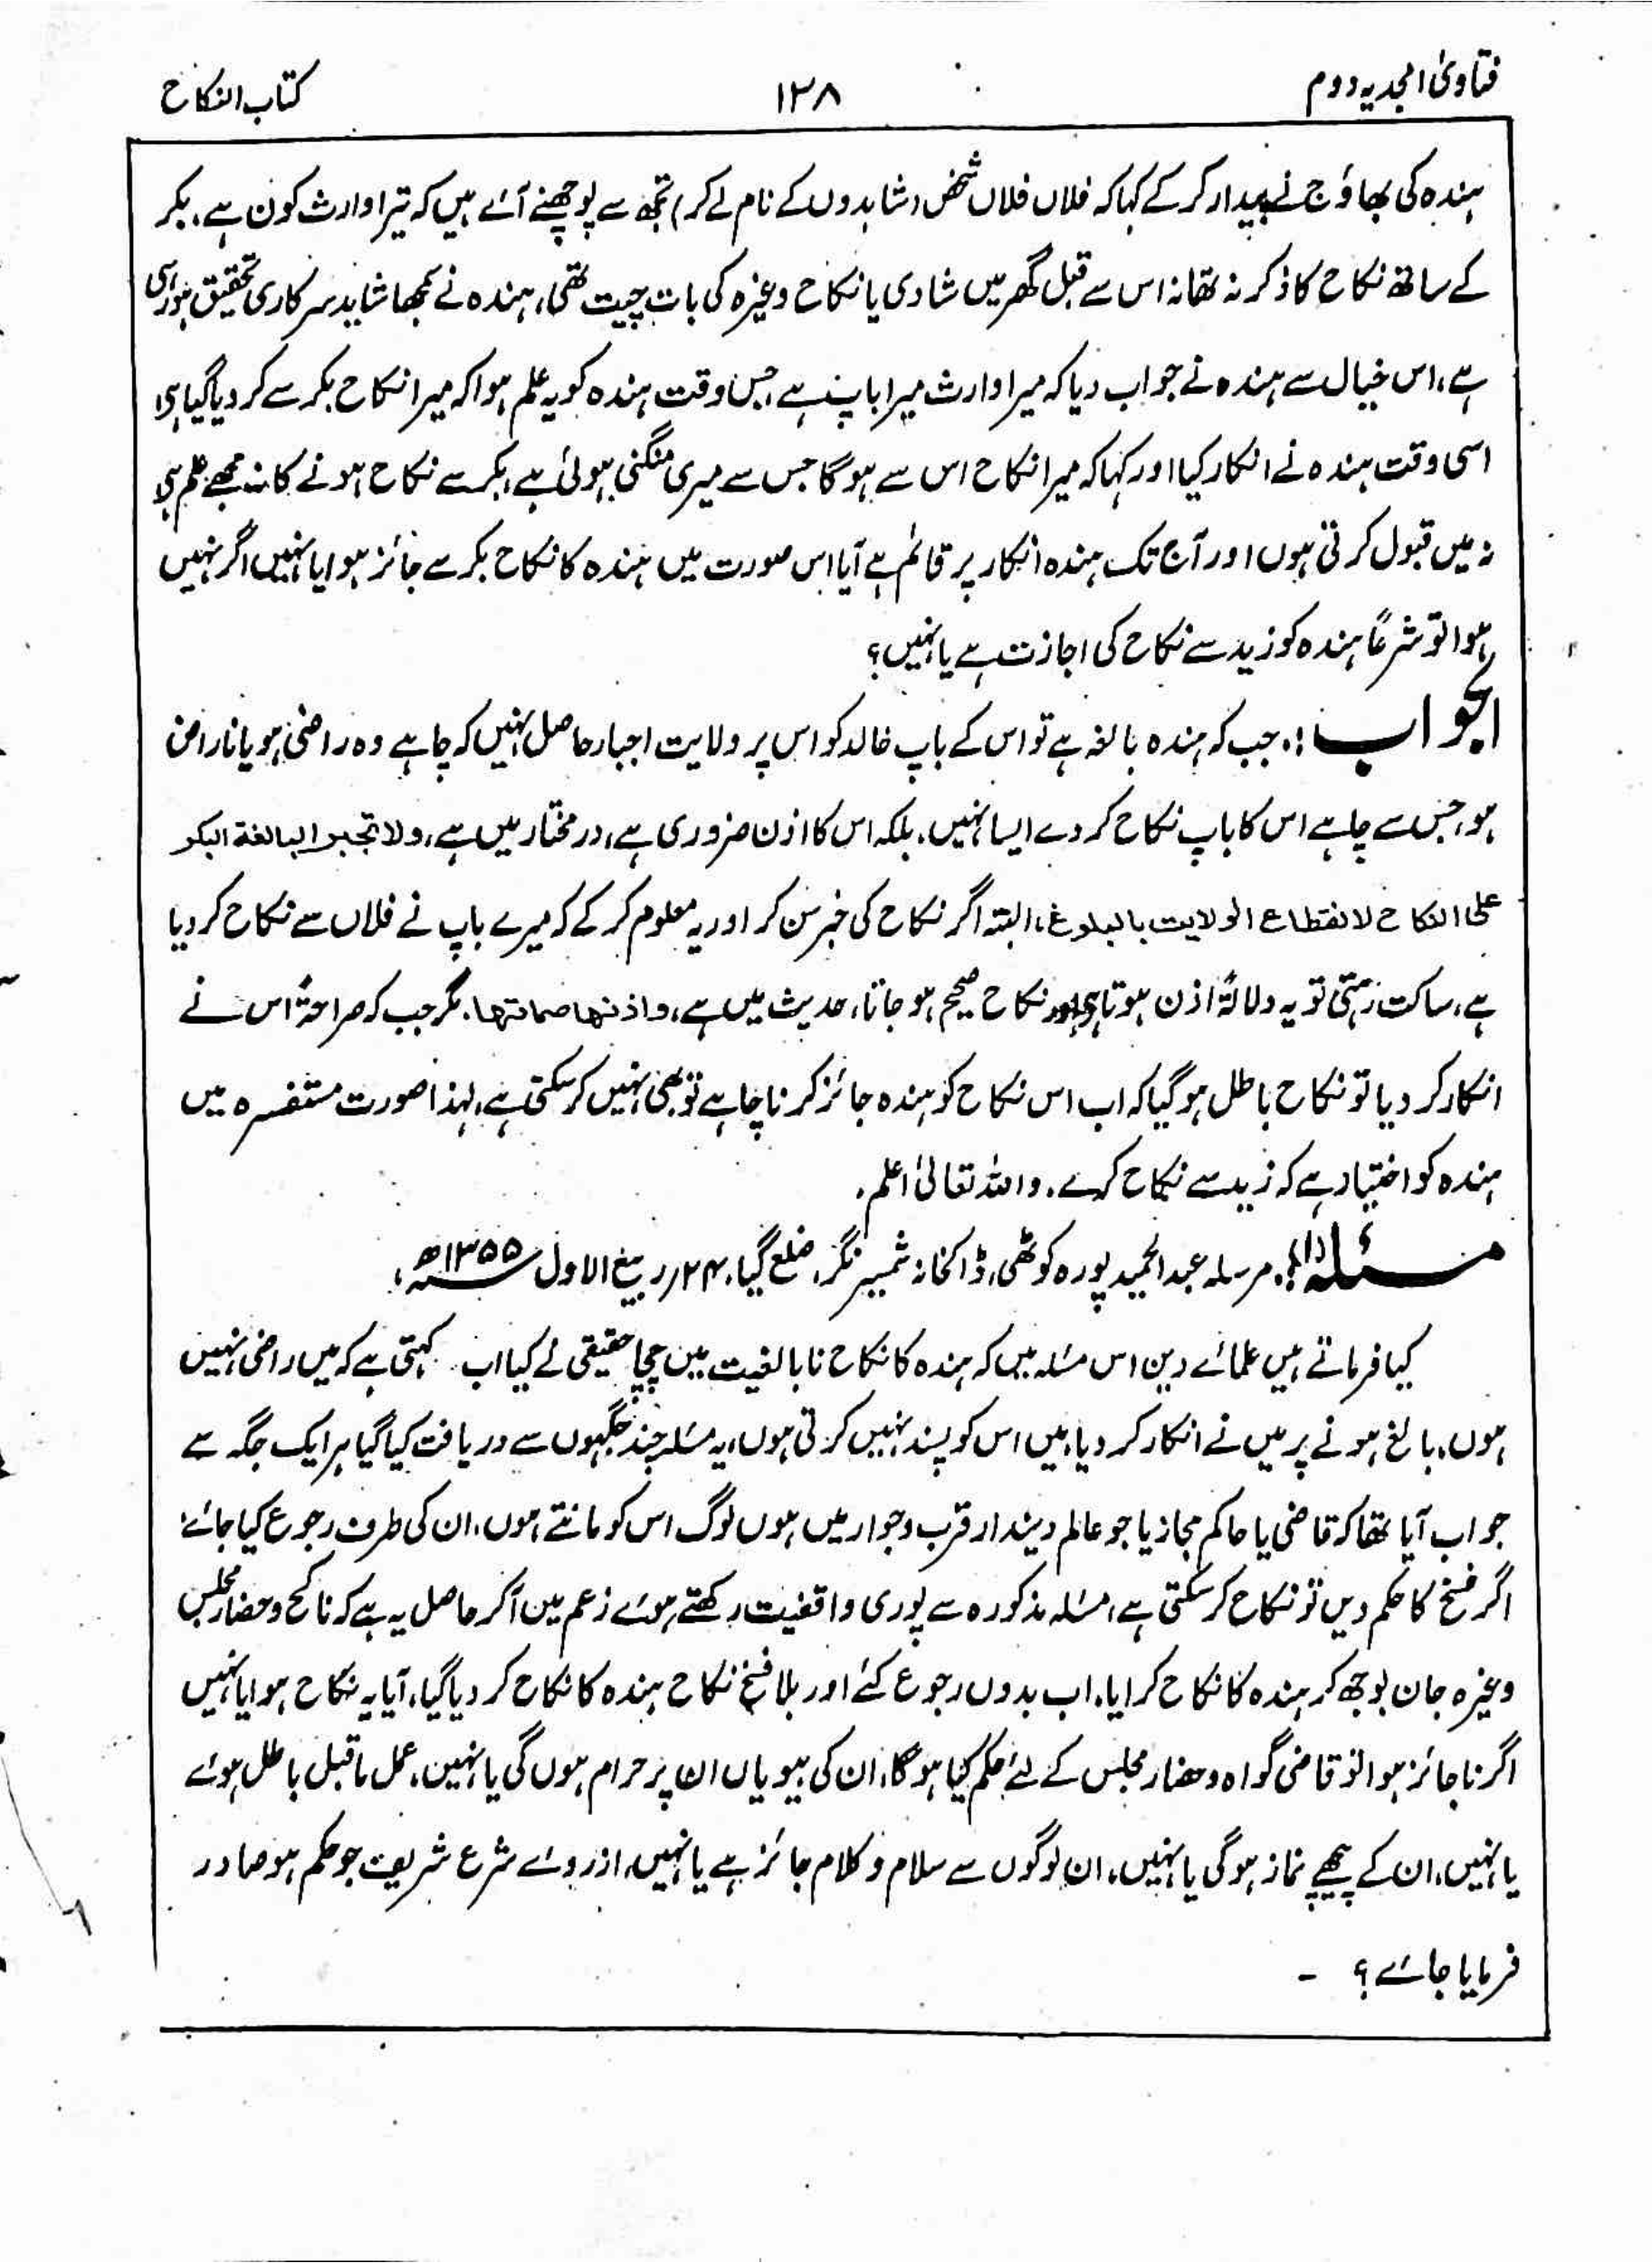 فتاویٰ امجدیہ دوم
۱۳۸
کتاب النکاح
ہندہ کی بھاؤج نے بیدار کرکے کہا کہ فلاں فلاں شخص (شاہدوں کے نام لے کر) تجھ سے پوچھنے آئے ہیں کہ تیرا وارث کون ہے، بکر
کے ساتھ نکاح کا ذکر نہ تھا نہ اس سے قبل گھر میں شادی یا نکاح وغیرہ کی بات چیت تھی، ہندہ نے سمجھا شاید سرکاری تحقیق ہورہی
ہے، اس خیال سے ہندہ نے جواب دیا کہ میرا وارث میرا باپ ہے، جس وقت ہندہ کو یہ علم ہوا کہ میرا نکاح بکر سے کر دیا گیا ہی
اسی وقت ہندہ نے انکار کیا اور کہا کہ میرا نکاح اس سے ہوگا جس سے میری منگنی ہوئی ہے، بکر سے نکاح ہونے کا نہ مجھے علم ہی
نہ میں قبول کرتی ہوں اور آج تک ہندہ انکار پر قائم ہے آیا اس صورت میں ہندہ کا نکاح بکر سے جائز ہوا یا نہیں اگر نہیں
ہوا تو شرعاً ہندہ کو زید سے نکاح کی اجازت ہے یا نہیں؟
الجواب:۔ جب کہ ہندہ بالغہ ہے تو اس کے باپ خالد کو اس پر ولایت اجبار حاصل نہیں کہ چاہے وہ راضی ہو یا ناراض
ہو، جس سے چاہے اس کا باپ نکاح کر دے ایسا نہیں، بلکہ اس کا اذن ضروری ہے، در مختار میں ہے، ولا تجبر البالغۃ البکر
علی النکاح لانقطاع الولایت بالبلوغ، البتہ اگر نکاح کی خبر سن کر اور یہ معلوم کرکے کہ میرے باپ نے فلاں سے نکاح کر دیا
ہے، ساکت رہتی تو یہ دلالۃً اذن ہوتا ہی اور نکاح صحیح ہو جاتا، حدیث میں ہے، واذنھا صماتھا، مگر جب کہ صراحۃً اس نے
انکار کر دیا تو نکاح باطل ہوگیا کہ اب اس نکاح کو ہندہ جائز کرنا چاہے تو بھی نہیں کرسکتی ہے، لہٰذا صورت مستفسرہ میں
ہندہ کو اختیار ہے کہ زید سے نکاح کرے۔ واللہ تعالیٰ اعلم۔
مسئلہ:۔ مرسلہ عبدالحمید پورہ کوٹھی، ڈاکخانہ شمسیر نگر، ضلع گیا، ۲۴؍ ربیع الاول ۱۳۵۵ھ،
کیا فرماتے ہیں علمائے دین اس مسئلہ میں کہ ہندہ کا نکاح نابالغیت میں چچا حقیقی نے کیا اب کہتی ہے کہ میں راضی نہیں
ہوں، بالغ ہونے پر میں نے انکار کر دیا، میں اس کو پسند نہیں کرتی ہوں، یہ مسئلہ چند جگہوں سے دریافت کیا گیا ہر ایک جگہ سے
جواب آیا تھا کہ قاضی یا حاکم مجاز یا جو عالم دیندار قرب وجوار میں ہوں لوگ اس کو مانتے ہوں، ان کی طرف رجوع کیا جائے
اگر فسخ کا حکم دیں تو نکاح کرسکتی ہے، مسئلہ مذکورہ سے پوری واقفیت رکھتے ہوئے زعم میں آکر حاصل یہ ہے کہ ناکح و حضار مجلس
وغیرہ جان بوجھ کر ہندہ کا نکاح کرایا، اب بدوں رجوع کئے اور بلا فسخ نکاح ہندہ کا نکاح کر دیا گیا، آیا یہ نکاح ہوا یا نہیں
اگر ناجائز ہوا تو قاضی گواہ و حضار مجلس کے لئے حکم کیا ہوگا، ان کی بیویاں ان پر حرام ہوں گی یا نہیں، عمل ماقبل باطل ہوئے
یا نہیں، ان کے پیچھے نماز ہوگی یا نہیں، ان لوگوں سے سلام و کلام جائز ہے یا نہیں، ازروئے شرع شریعت جو حکم ہو صادر
فرمایا جائے؟ -